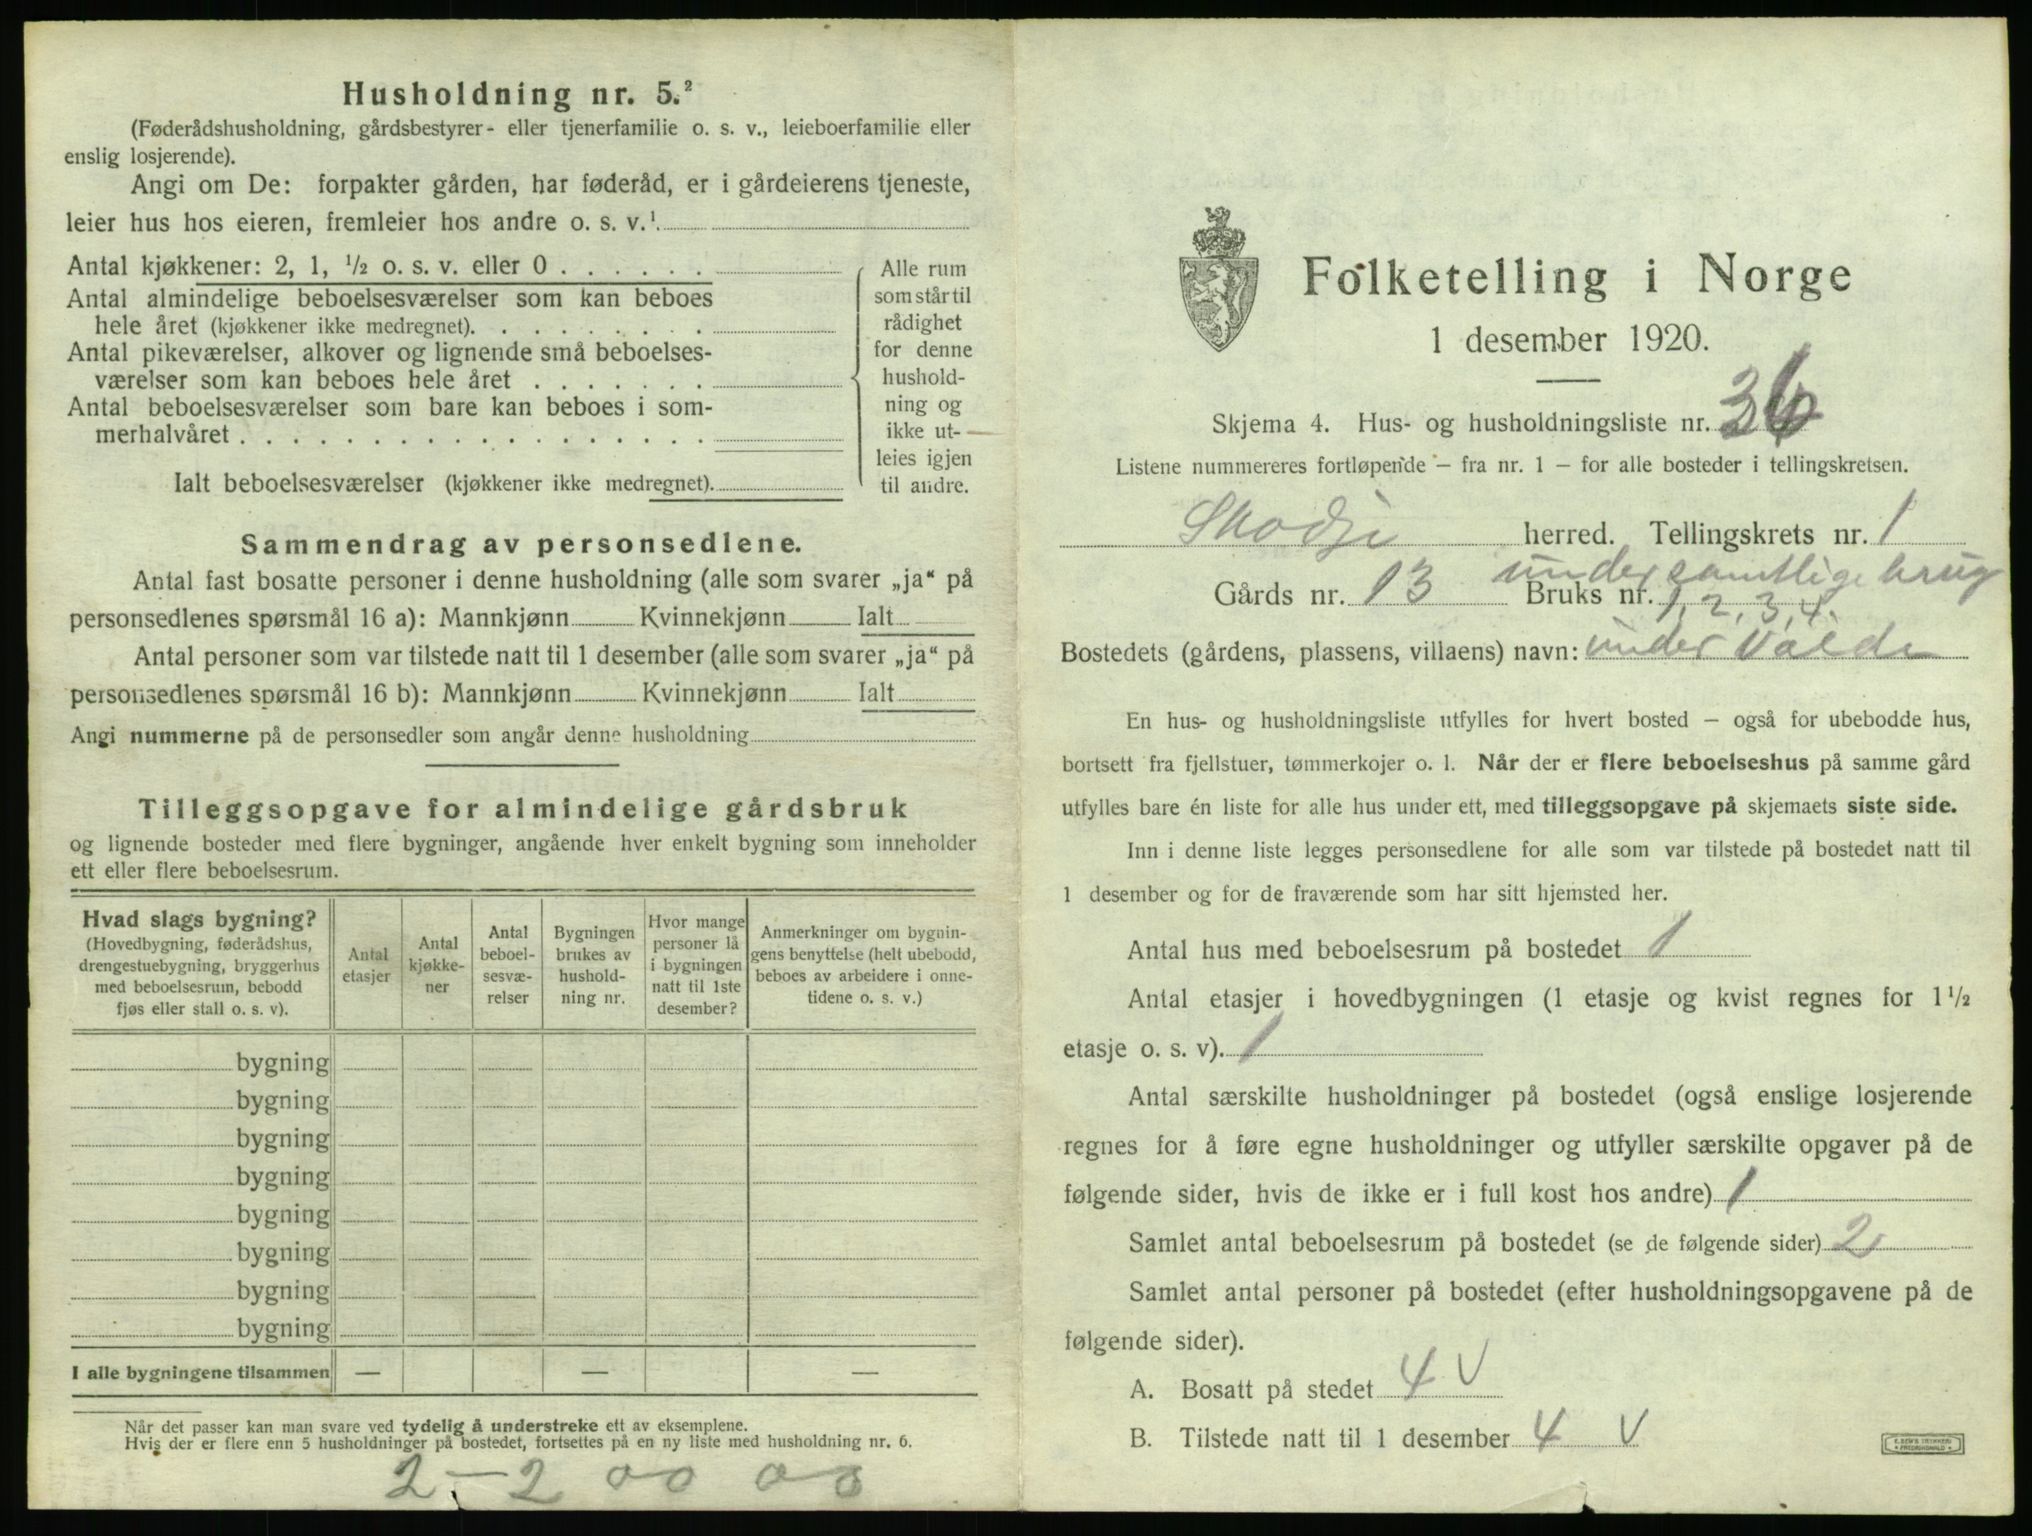 Husholdning nr. 5.²
(Føderådshusholdning, gårdsbestyrer- eller tjenerfamilie o. s. v., leieboerfamilie eller
enslig losjerende).
Angi om De: forpakter gården, har føderåd, er i gårdeierens tjeneste,
leier hus hos eieren, fremleier hos andre o. s. v.¹
Antal kjøkkener: 2, 1, ½ o. s. v. eller 0 . . . . . .
Antal almindelige beboelsesværelser som kan beboes
hele året (kjøkkener ikke medregnet). . . . . . . . .
Antal pikeværelser, alkover og lignende små beboelses-
værelser som kan beboes hele året . . . . . . .
Antal beboelsesværelser som bare kan beboes i som-
merhalvåret . . . . . . . . . . . . . . . . . .
Ialt beboelsesværelser (kjøkkener ikke medregnet).
Alle rum
som står til
rådighet
for denne
hushold-
ning og
ikke ut-
leies igjen
til andre.
Sammendrag av personsedlene.
Antal fast bosatte personer i denne husholdning (alle som svarer „ja“ på
personsedlenes spørsmål 16 a): Mannkjønn Kvinnekjønn Ialt
Antal personer som var tilstede natt til 1 desember (alle som svarer „ja“ på
personsedlenes spørsmål 16 b): Mannkjønn Kvinnekjønn Ialt
Angi nummerne på de personsedler som angår denne husholdning
Tilleggsopgave for almindelige gårdsbruk
og lignende bosteder med flere bygninger, angående hver enkelt bygning som inneholder
ett eller flere beboelsesrum.
Hvad slags bygning?
(Hovedbygning, føderådshus,
drengestuebygning, bryggerhus
med beboelsesrum, bebodd
fjøs eller stall o. s. v).
Antal
etasjer
Antal
kjøkke-
ner
Antal
beboel-
sesvæ-
relser
Bygningen
brukes av
hushold-
ning nr.
Hvor mange
personer lå
i bygningen
natt til 1ste
desember?
Anmerkninger om bygnin-
gens benyttelse (helt ubebodd,
beboes av arbeidere i onne-
tidene o. s. v.)
bygning
bygning
bygning
bygning
bygning
bygning
bygning
bygning
I alle bygningene tilsammen — — —
Når det passer kan man svare ved tydelig å understreke ett av eksemplene.
Hvis der er flere enn 5 husholdninger på bostedet, fortsettes på en ny liste med husholdning nr. 6.
2 – 2 00 00
Folketelling i Norge
1 desember 1920.
Skjema 4. Hus- og husholdningsliste nr. 36
Listene nummereres fortløpende – fra nr. 1 – for alle bosteder i tellingskretsen.
Skodje herred. Tellingskrets nr. 1
under samtlige brug
Gårds nr. 13 Bruks nr. 1, 2, 3, 4.
Bostedets (gårdens, plassens, villaens) navn: under Valde
En hus- og husholdningsliste utfylles for hvert bosted – også for ubebodde hus,
bortsett fra fjellstuer, tømmerkojer o. l. Når der er flere beboelseshus på samme gård
utfylles bare én liste for alle hus under ett, med tilleggsopgave på skjemaets siste side.
Inn i denne liste legges personsedlene for alle som var tilstede på bostedet natt til
1 desember og for de fraværende som har sitt hjemsted her.
Antal hus med beboelsesrum på bostedet 1
Antal etasjer i hovedbygningen (1 etasje og kvist regnes for 1½
etasje o. s. v). 1
Antal særskilte husholdninger på bostedet (også enslige losjerende
regnes for å føre egne husholdninger og utfyller særskilte opgaver på de
følgende sider, hvis de ikke er i full kost hos andre) 1
Samlet antal beboelsesrum på bostedet (se de følgende sider) 2
Samlet antal personer på bostedet (efter husholdningsopgavene på de
følgende sider).
A. Bosatt på stedet 4 V
B. Tilstede natt til 1 desember 4 V